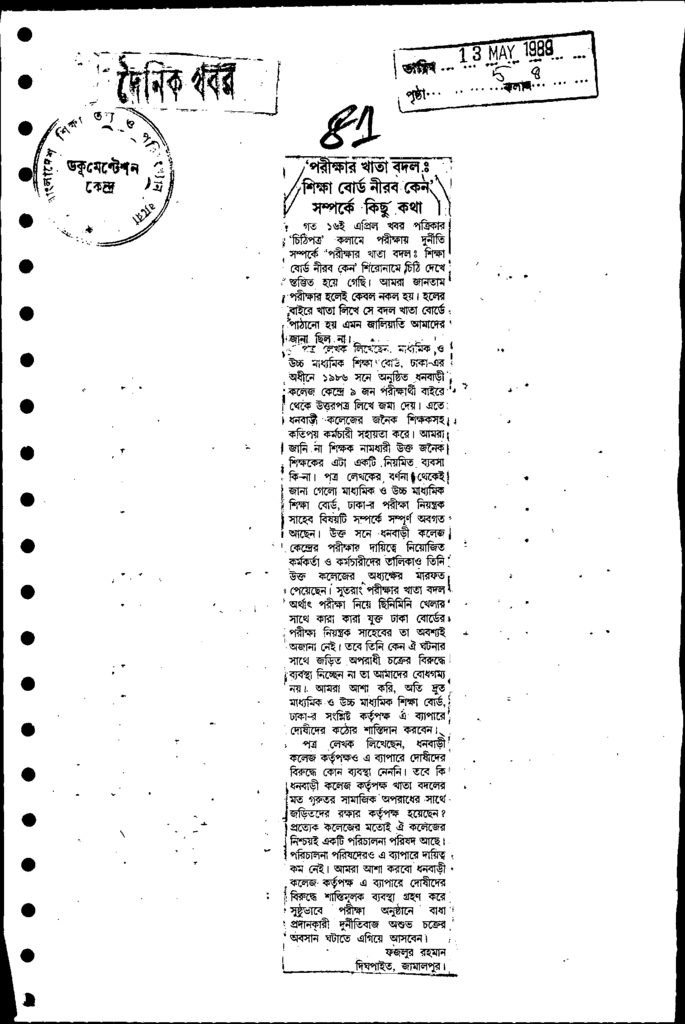 দৈনিক খবর
তারিখ ... 13 MAY 1989
পৃষ্ঠা ... 5 কলাম ... 8
81
বাংলাদেশ শিক্ষা তথ্য ও পরিসংখ্যান ব্যুরো
ডকুমেন্টেশন
কেন্দ্র
'পরীক্ষার খাতা বদল ঃ
শিক্ষা বোর্ড নীরব কেন'
সম্পর্কে কিছু কথা
গত ১৬ই এপ্রিল খবর পত্রিকার
'চিঠিপত্র' কলামে পরীক্ষায় দুর্নীতি
সম্পর্কে 'পরীক্ষার খাতা বদল ঃ শিক্ষা
বোর্ড নীরব কেন' শিরোনামে চিঠি দেখে
স্তম্ভিত হয়ে গেছি। আমরা জানতাম
পরীক্ষার হলেই কেবল নকল হয়। হলের
বাইরে খাতা লিখে সে বদল খাতা বোর্ডে
পাঠানো হয় এমন জালিয়াতি আমাদের
জানা ছিল না।
পত্র লেখক লিখেছেন, মাধ্যমিক ও
উচ্চ মাধ্যমিক শিক্ষা বোর্ড, ঢাকা-এর
অধীনে ১৯৮৬ সনে অনুষ্ঠিত ধনবাড়ী
কলেজ কেন্দ্রে ৯ জন পরীক্ষার্থী বাইরে
থেকে উত্তরপত্র লিখে জমা দেয়। এতে
ধনবাড়ী কলেজের জনৈক শিক্ষকসহ
কতিপয় কর্মচারী সহায়তা করে। আমরা
জানি না শিক্ষক নামধারী উক্ত জনৈক
শিক্ষকের এটা একটি নিয়মিত ব্যবসা
কি-না। পত্র লেখকের বর্ণনা থেকেই
জানা গেলো মাধ্যমিক ও উচ্চ মাধ্যমিক
শিক্ষা বোর্ড, ঢাকা-র পরীক্ষা নিয়ন্ত্রক
সাহেব বিষয়টি সম্পর্কে সম্পূর্ণ অবগত
আছেন। উক্ত সনে ধনবাড়ী কলেজ
কেন্দ্রের পরীক্ষার দায়িত্বে নিয়োজিত
কর্মকর্তা ও কর্মচারীদের তালিকাও তিনি
উক্ত কলেজের অধ্যক্ষের মারফত
পেয়েছেন। সুতরাং পরীক্ষার খাতা বদল
অর্থাৎ পরীক্ষা নিয়ে ছিনিমিনি খেলার
সাথে কারা কারা যুক্ত ঢাকা বোর্ডের
পরীক্ষা নিয়ন্ত্রক সাহেবের তা অবশ্যই
অজানা নেই। তবে তিনি কেন ঐ ঘটনার
সাথে জড়িত অপরাধী চক্রের বিরুদ্ধে
ব্যবস্থা নিচ্ছেন না তা আমাদের বোধগম্য
নয়। আমরা আশা করি, অতি দ্রুত
মাধ্যমিক ও উচ্চ মাধ্যমিক শিক্ষা বোর্ড,
ঢাকা-র সংশ্লিষ্ট কর্তৃপক্ষ এ ব্যাপারে
দোষীদের কঠোর শাস্তিদান করবেন।
পত্র লেখক লিখেছেন, ধনবাড়ী
কলেজ কর্তৃপক্ষও এ ব্যাপারে দোষীদের
বিরুদ্ধে কোন ব্যবস্থা নেননি। তবে কি
ধনবাড়ী কলেজ কর্তৃপক্ষ খাতা বদলের
মত গুরুতর সামাজিক অপরাধের সাথে
জড়িতদের রক্ষার কর্তৃপক্ষ হয়েছেন?
প্রত্যেক কলেজের মতোই ঐ কলেজের
নিশ্চয়ই একটি পরিচালনা পরিষদ আছে।
পরিচালনা পরিষদেরও এ ব্যাপারে দায়িত্ব
কম নেই। আমরা আশা করবো ধনবাড়ী
কলেজ কর্তৃপক্ষ এ ব্যাপারে দোষীদের
বিরুদ্ধে শাস্তিমূলক ব্যবস্থা গ্রহণ করে
সুষ্ঠুভাবে পরীক্ষা অনুষ্ঠানে বাধা
প্রদানকারী দুর্নীতিবাজ অশুভ চক্রের
অবসান ঘটাতে এগিয়ে আসবেন।
ফজলুর রহমান
দিঘপাইত, জামালপুর।